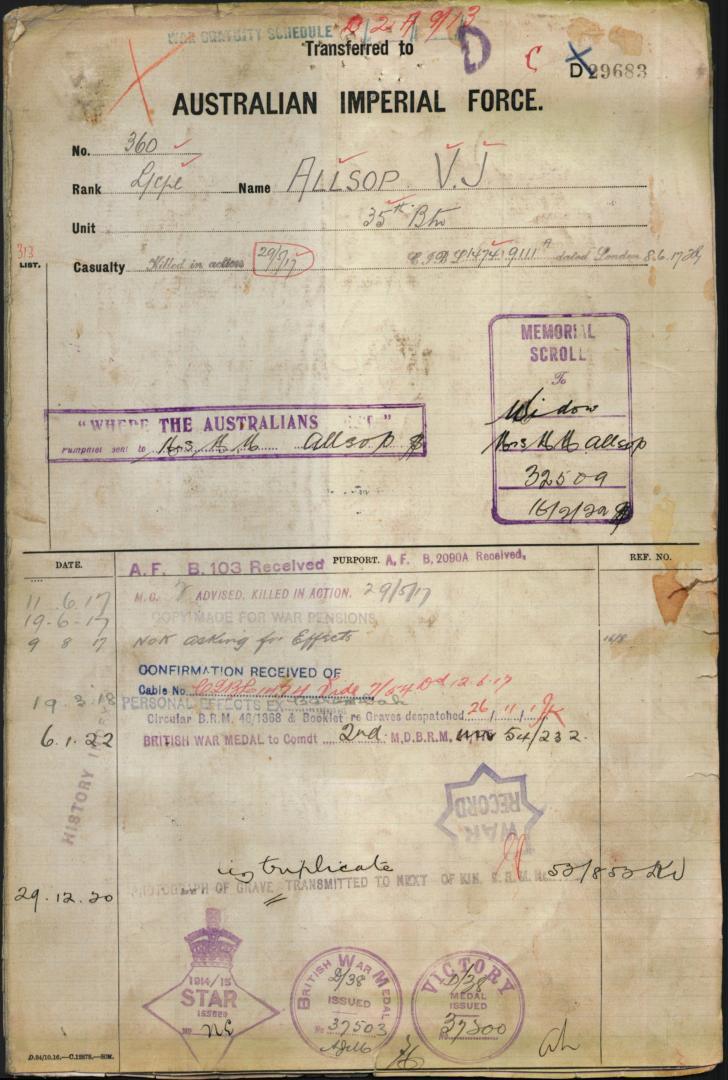 WAR GRATUITY SCHEDULE
Transferred to
D
C
D 29683
AUSTRALIAN IMPERIAL FORCE.
No. 360
Rank L/cpl Name ALLSOP V.J
Unit 35th Btn
313
LIST.
Casualty Killed in action 29/5/17 dated London 8.6.17
MEMORIAL
SCROLL
To
Widow
Mrs M M Allsop
32509
"WHERE THE AUSTRALIANS "
Pamphlet sent to Mrs M M Allsop
DATE. PURPORT. REF. NO.
A.F. B.103 Received A.F. B.2090A Received,
11.6.17 M.C. ADVISED, KILLED IN ACTION. 29/5/17
19-6-17 COPY MADE FOR WAR PENSIONS
9 8 17 NoK asking for Effects 16/8
CONFIRMATION RECEIVED OF
Cable No. Vide 7/54 Dd 12.6.17
19.3.18 PERSONAL EFFECTS EX
Circular B.R.M. 46/1368 & Booklet re Graves despatched 26
6.1.22 BRITISH WAR MEDAL to Comdt 2nd M.D.B.R.M. 54/232.
HISTORY
WAR
RECORD
in triplicate
29.12.20 PHOTOGRAPH OF GRAVE TRANSMITTED TO NEXT OF KIN. B.R.M. No. 53/853
1914/15
STAR
ISSUED
No NE
BRITISH WAR MEDAL
D/38
ISSUED
No 37503
VICTORY
D/38
MEDAL
ISSUED
37500
D.94/10.16.—C.12878.—50M.